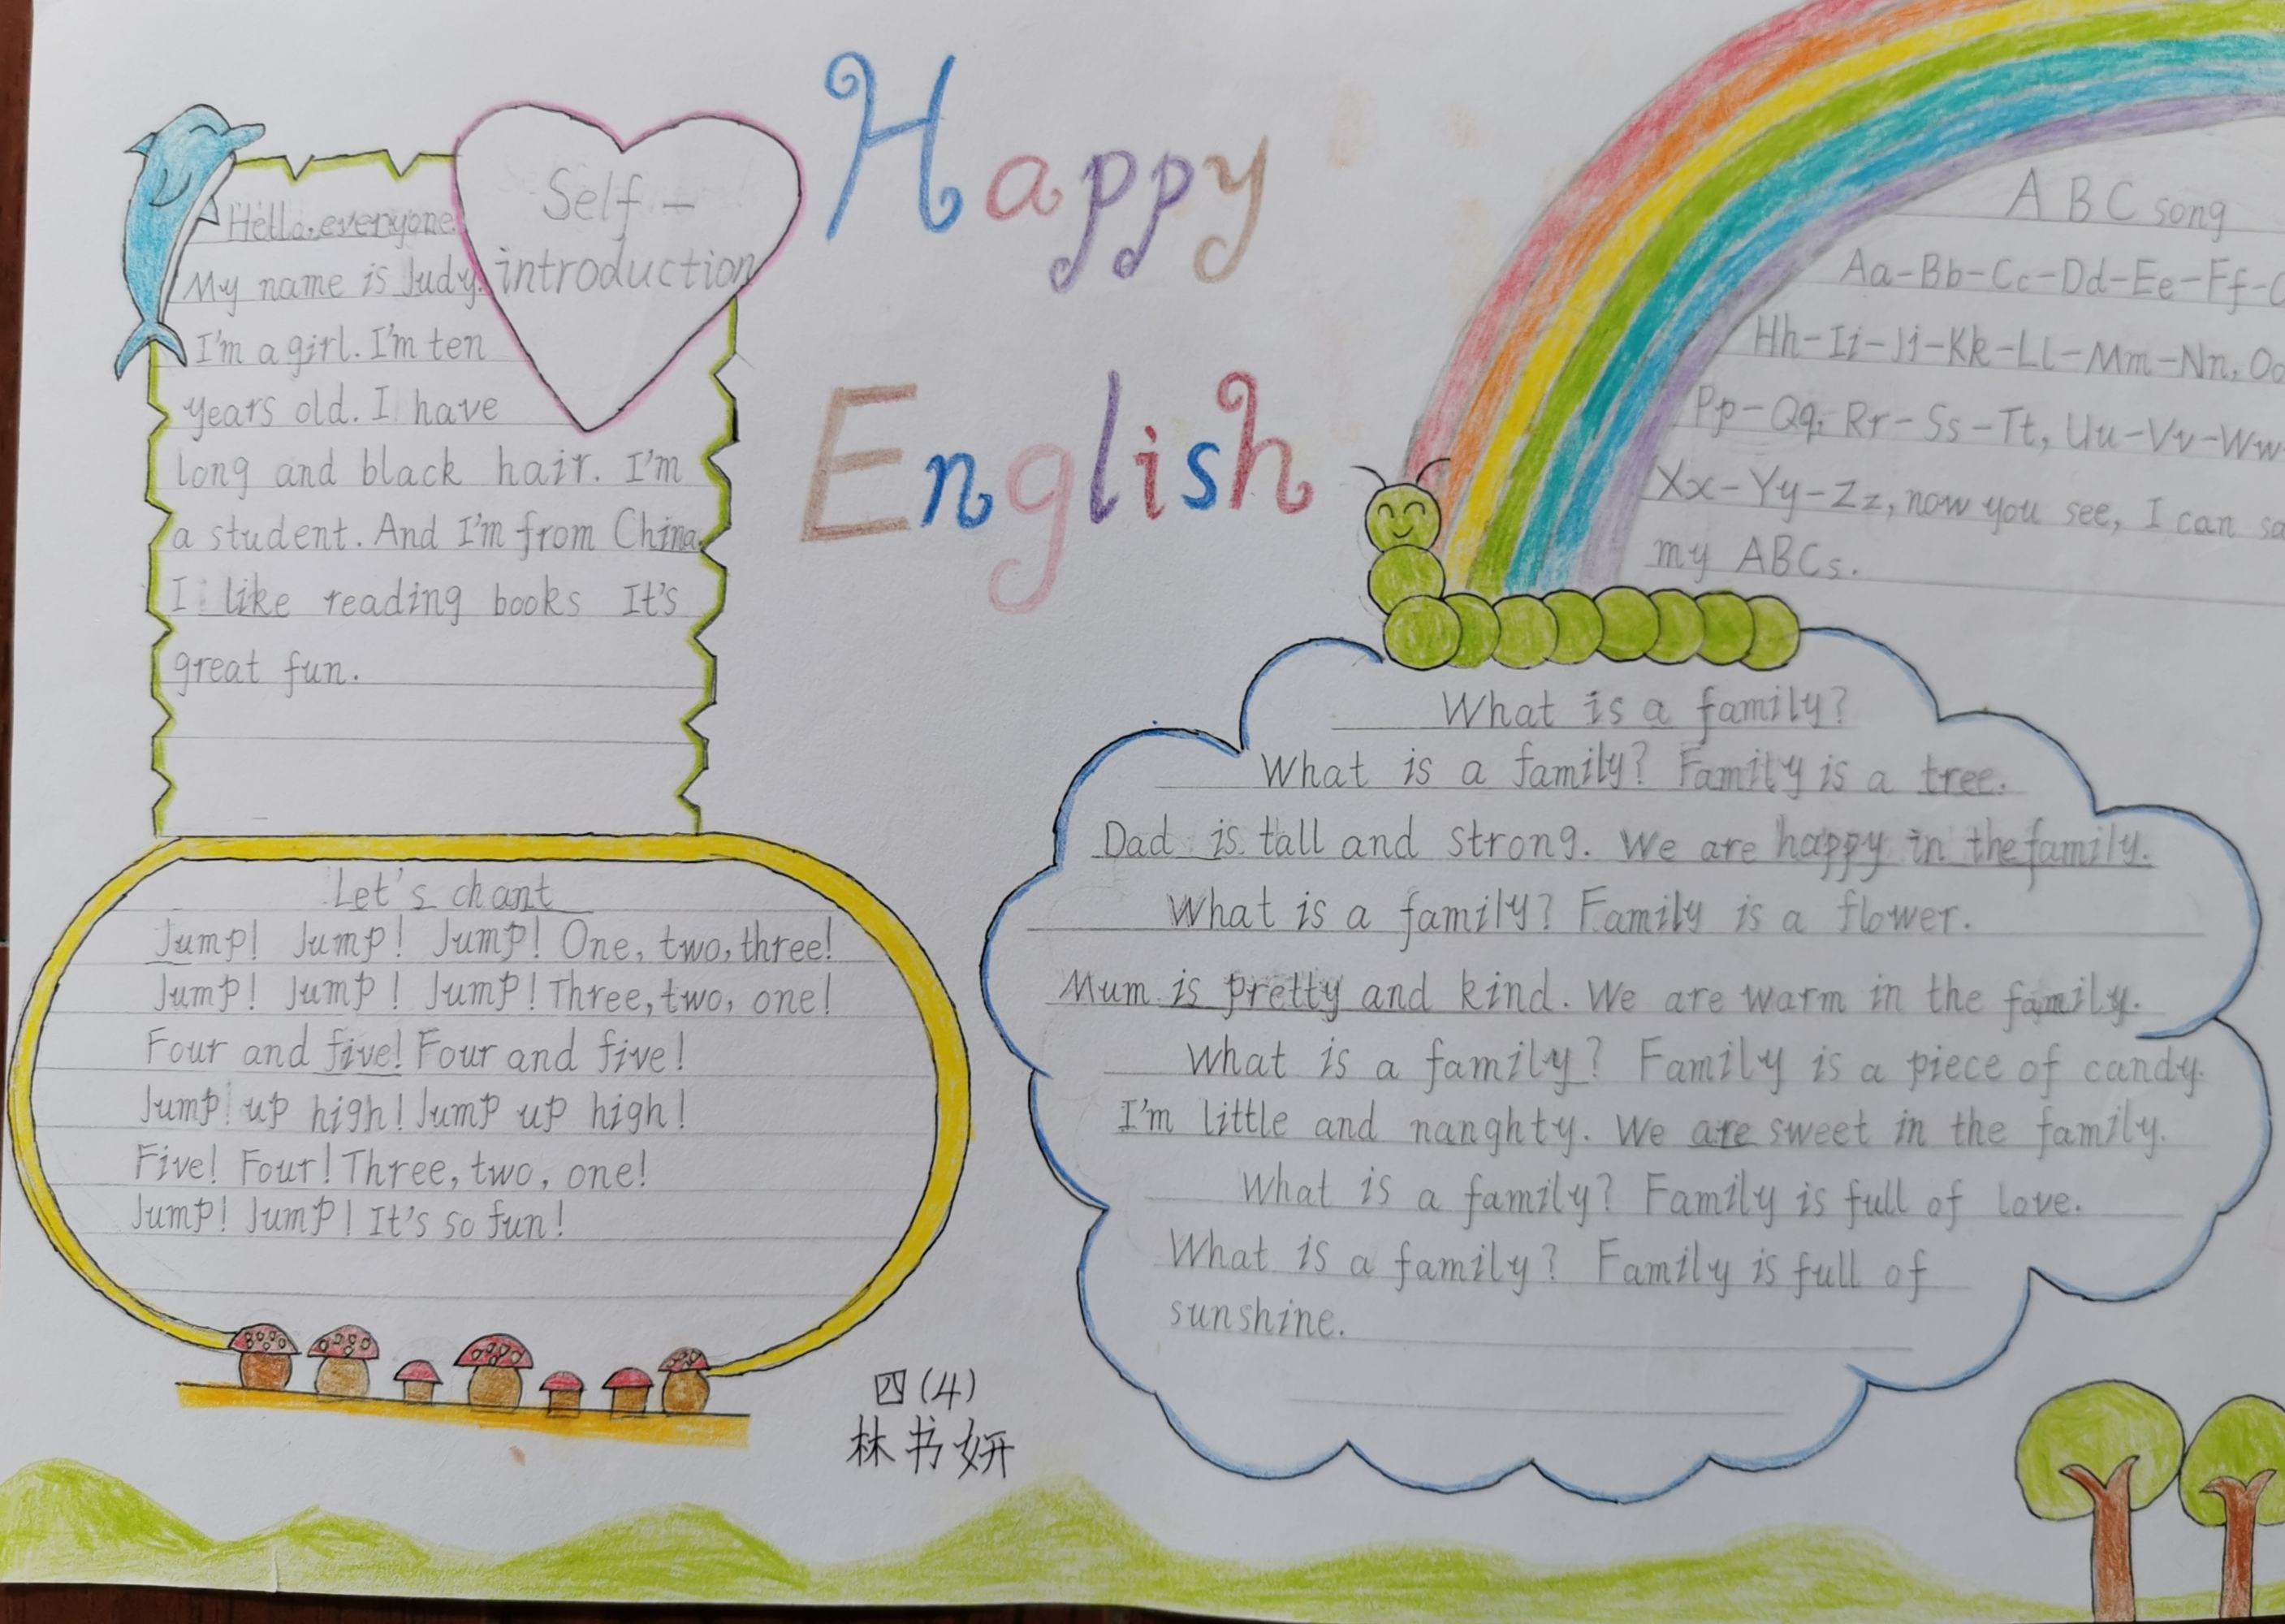 Happy
English
Self-
introduction
Hello, everyone.
My name is Judy.
I'm a girl. I'm ten
years old. I have
long and black hair. I'm
a student. And I'm from China.
I like reading books It's
great fun.
Let's chant
Jump! Jump! Jump! One, two, three!
Jump! Jump! Jump! Three, two, one!
Four and five! Four and five!
Jump up high! Jump up high!
Five! Four! Three, two, one!
Jump! Jump! It's so fun!
ABC song
Aa-Bb-Cc-Dd-Ee-Ff-
Hh-Ii-Jj-Kk-Ll-Mm-Nn, Oo
Pp-Qq, Rr-Ss-Tt, Uu-Vv-Ww
Xx-Yy-Zz, now you see, I can
my ABCs.
What is a family?
What is a family? Family is a tree.
Dad is tall and strong. We are happy in the family.
What is a family? Family is a flower.
Mum is pretty and kind. We are warm in the family.
What is a family? Family is a piece of candy.
I'm little and nanghty. We are sweet in the family.
What is a family? Family is full of love.
What is a family? Family is full of
sunshine.
四(4)
林书妍